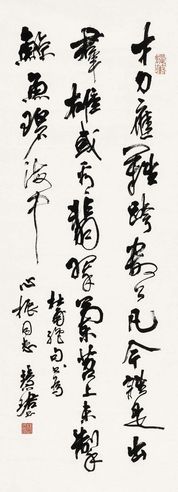 才力應難跨數公凡今誰是出
群雄或看翡翠蘭苕上未掣
鯨魚碧海中
杜甫絕句書為
心振同志